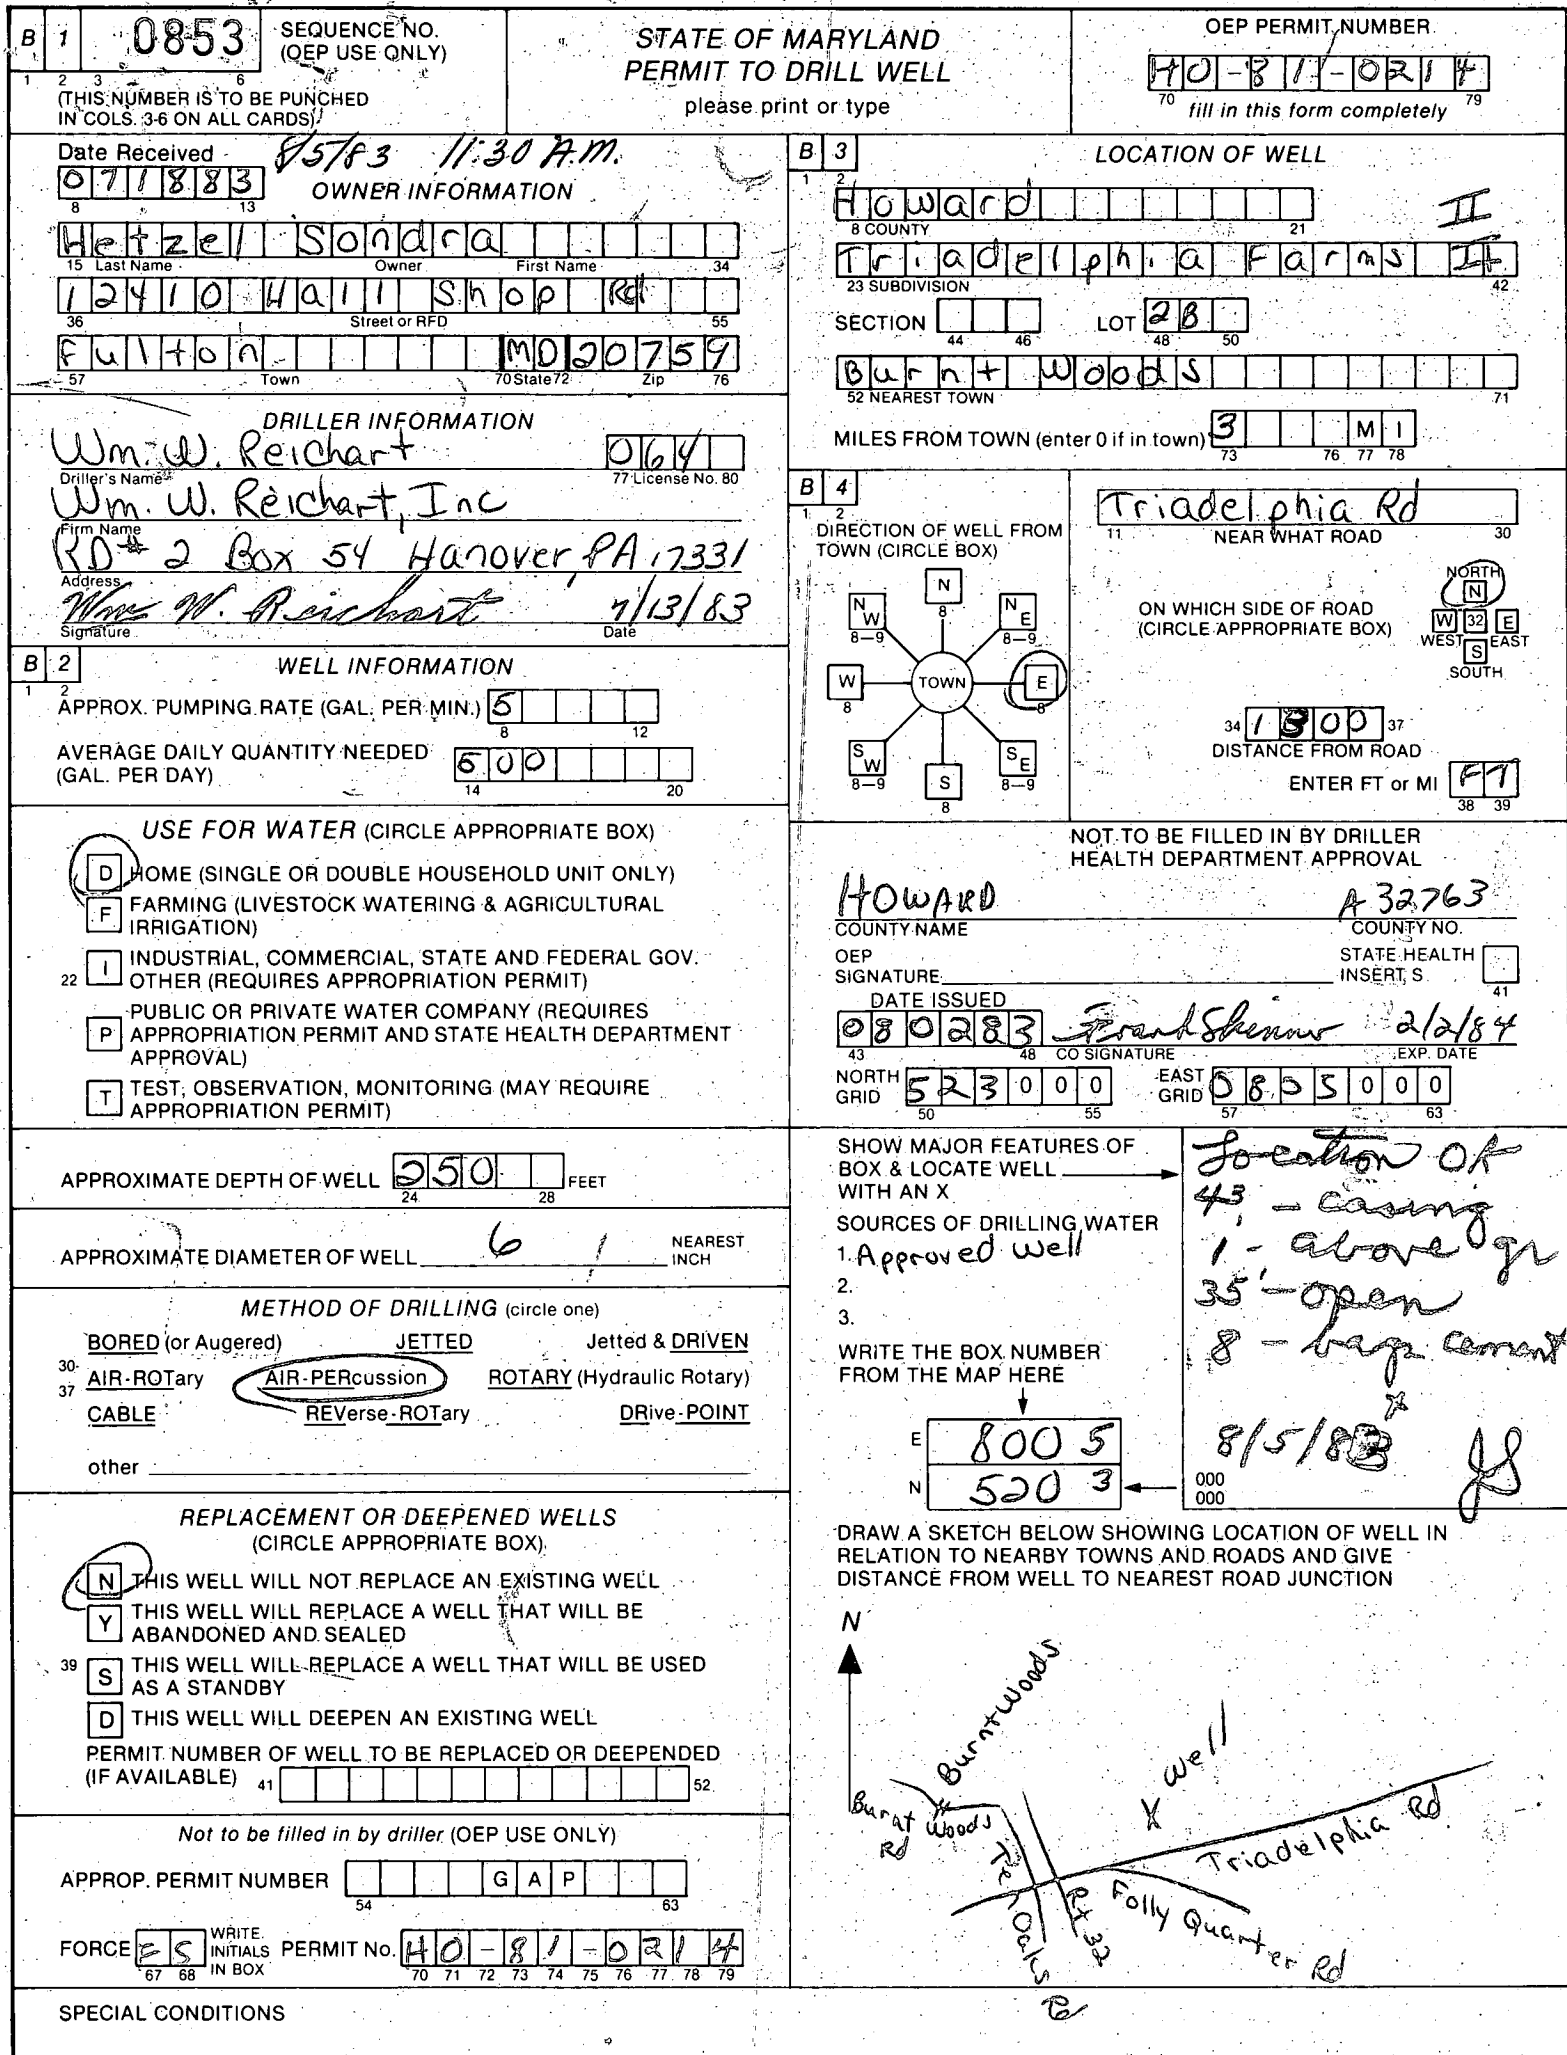 B 1 0853 SEQUENCE NO. (OEP USE ONLY)
1 2 3 6
(THIS NUMBER IS TO BE PUNCHED
IN COLS. 3-6 ON ALL CARDS)
STATE OF MARYLAND
PERMIT TO DRILL WELL
please print or type
OEP PERMIT NUMBER
HO-81-0214
70 79
fill in this form completely
Date Received 8/5/83 11:30 A.M.
071883
8 13
OWNER INFORMATION
Hetzel Sondra
15 Last Name Owner First Name 34
12410 Hall Shop Rd
36 Street or RFD 55
Fulton MD 20759
57 Town 70 State 72 Zip 76
DRILLER INFORMATION
Wm. W. Reichart 064
Driller's Name 77 License No. 80
Wm. W. Reichart, Inc
Firm Name
RD# 2 Box 54 Hanover, PA 17331
Address
Wm W. Reichart 7/13/83
Signature Date
B 2 WELL INFORMATION
1 2
APPROX. PUMPING RATE (GAL. PER MIN.) 5
8 12
AVERAGE DAILY QUANTITY NEEDED
(GAL. PER DAY) 500
14 20
USE FOR WATER (CIRCLE APPROPRIATE BOX)
D HOME (SINGLE OR DOUBLE HOUSEHOLD UNIT ONLY)
F FARMING (LIVESTOCK WATERING & AGRICULTURAL
IRRIGATION)
22 I INDUSTRIAL, COMMERCIAL, STATE AND FEDERAL GOV.
OTHER (REQUIRES APPROPRIATION PERMIT)
P PUBLIC OR PRIVATE WATER COMPANY (REQUIRES
APPROPRIATION PERMIT AND STATE HEALTH DEPARTMENT
APPROVAL)
T TEST, OBSERVATION, MONITORING (MAY REQUIRE
APPROPRIATION PERMIT)
APPROXIMATE DEPTH OF WELL 250 FEET
24 28
APPROXIMATE DIAMETER OF WELL 6 NEAREST
INCH
METHOD OF DRILLING (circle one)
BORED (or Augered) JETTED Jetted & DRIVEN
30-37 AIR-ROTary AIR-PERcussion ROTARY (Hydraulic Rotary)
CABLE REVerse-ROTary DRive-POINT
other
REPLACEMENT OR DEEPENED WELLS
(CIRCLE APPROPRIATE BOX)
N THIS WELL WILL NOT REPLACE AN EXISTING WELL
Y THIS WELL WILL REPLACE A WELL THAT WILL BE
ABANDONED AND SEALED
39 S THIS WELL WILL REPLACE A WELL THAT WILL BE USED
AS A STANDBY
D THIS WELL WILL DEEPEN AN EXISTING WELL
PERMIT NUMBER OF WELL TO BE REPLACED OR DEEPENDED
(IF AVAILABLE) 41 52
Not to be filled in by driller (OEP USE ONLY)
APPROP. PERMIT NUMBER GAP
54 63
FORCE ES WRITE INITIALS IN BOX PERMIT No. HO-81-0214
67 68 70 71 72 73 74 75 76 77 78 79
SPECIAL CONDITIONS
B 3 LOCATION OF WELL
1 2
Howard
8 COUNTY 21
II
Triadelphia Farms II
23 SUBDIVISION 42
SECTION LOT 2B
44 46 48 50
Burnt Woods
52 NEAREST TOWN 71
MILES FROM TOWN (enter 0 if in town) 3 MI
73 76 77 78
B 4
1 2
DIRECTION OF WELL FROM
TOWN (CIRCLE BOX)
N
8
NW NE
8-9 8-9
W TOWN E
8 8
SW SE
8-9 8-9
S
8
Triadelphia Rd
11 NEAR WHAT ROAD 30
ON WHICH SIDE OF ROAD
(CIRCLE APPROPRIATE BOX)
NORTH
N
W 32 E
WEST EAST
S
SOUTH
34 1300 37
DISTANCE FROM ROAD
ENTER FT or MI FT
38 39
NOT TO BE FILLED IN BY DRILLER
HEALTH DEPARTMENT APPROVAL
HOWARD A 32763
COUNTY NAME COUNTY NO.
OEP
SIGNATURE STATE HEALTH
INSERT S
41
DATE ISSUED
080283 Frank Skinner 2/2/84
43 48 CO SIGNATURE EXP. DATE
NORTH GRID 523000 EAST GRID 0805000
50 55 57 63
SHOW MAJOR FEATURES OF
BOX & LOCATE WELL
WITH AN X
SOURCES OF DRILLING WATER
1. Approved Well
2.
3.
WRITE THE BOX NUMBER
FROM THE MAP HERE
E 800 5
N 520 3
Location OK
43' - casing
1' - above gr
35' - open
8 - bags cement
8/5/83 JS
000
000
DRAW A SKETCH BELOW SHOWING LOCATION OF WELL IN
RELATION TO NEARBY TOWNS AND ROADS AND GIVE
DISTANCE FROM WELL TO NEAREST ROAD JUNCTION
N
Burnt Woods
Well
X
Burnt Woods
Rd
Triadelphia Rd
Ten Oaks Rd
Rt 32
Folly Quarter Rd